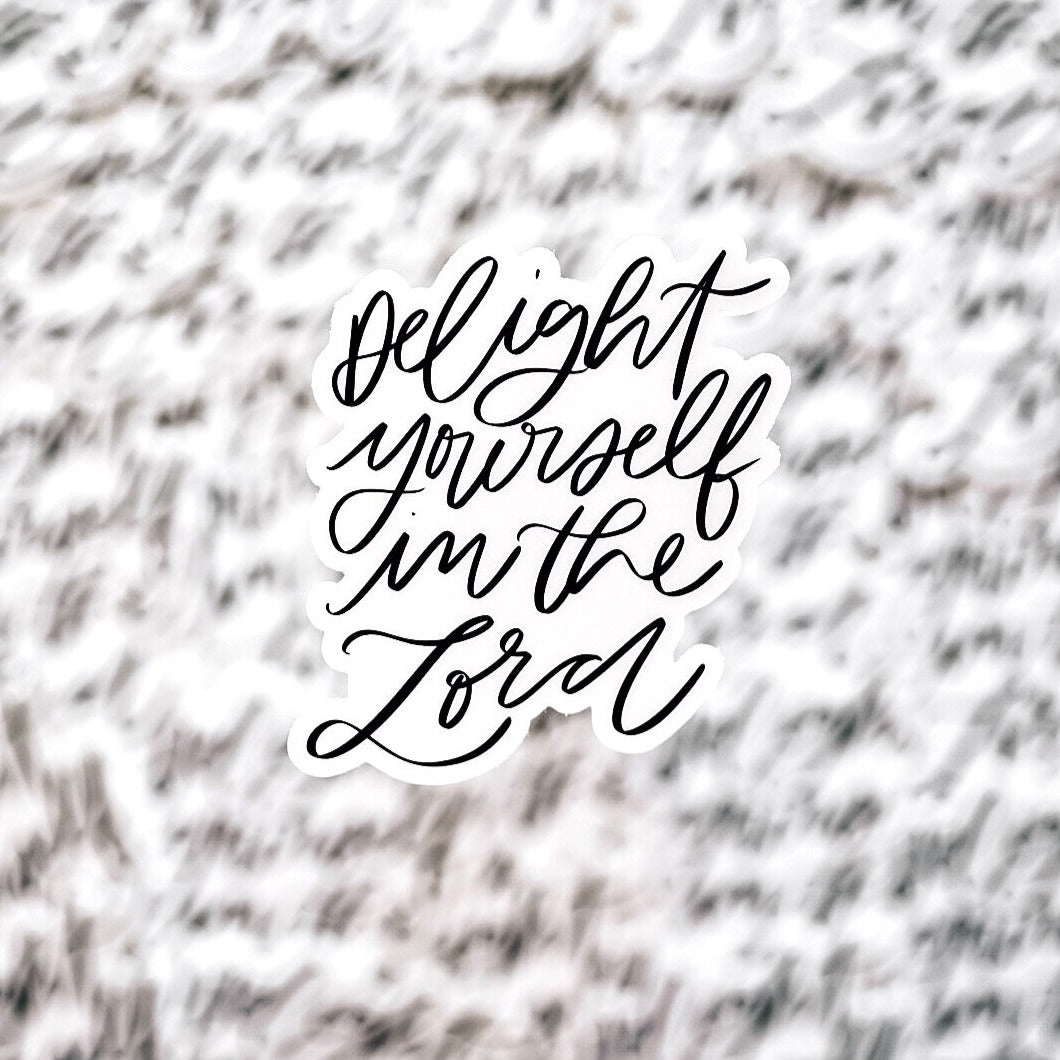 Delight
yourself
in the
Lord